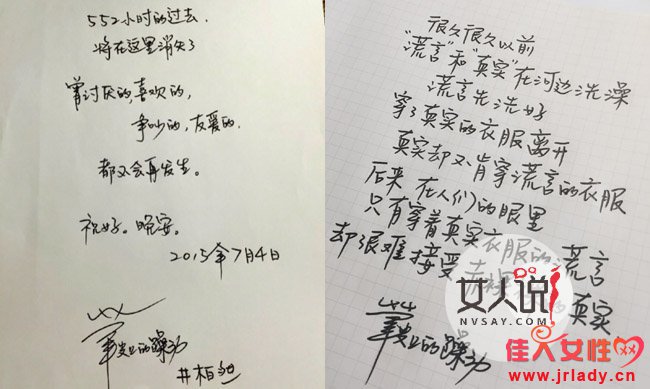 552小时的过去.
将在这里消失了
曾讨厌的,喜欢的,
争吵的,友爱的.
都不会再发生。
祝好。晚安。
2015年7月4日
的躁动
井柏然
很久很久以前
“谎言”和“真实”在河边洗澡
谎言先洗好
穿了真实的衣服离开
真实却不肯穿谎言的衣服
后来 在人们的眼里
只有穿着真实衣服的谎言
却很难接受 赤裸 的真实
的躁动
女人说
NVSAY.COM
佳人女性
www.jrlady.cn